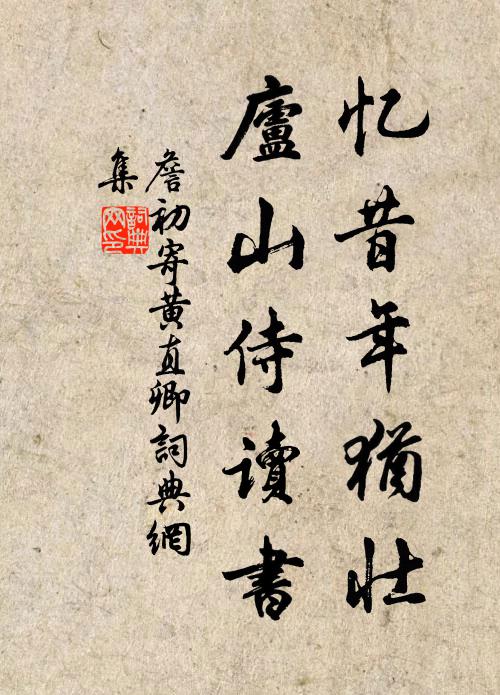 忆昔年猶壮
廬山侍讀書
詹初寄黄直卿詞典網
集
詞典网印